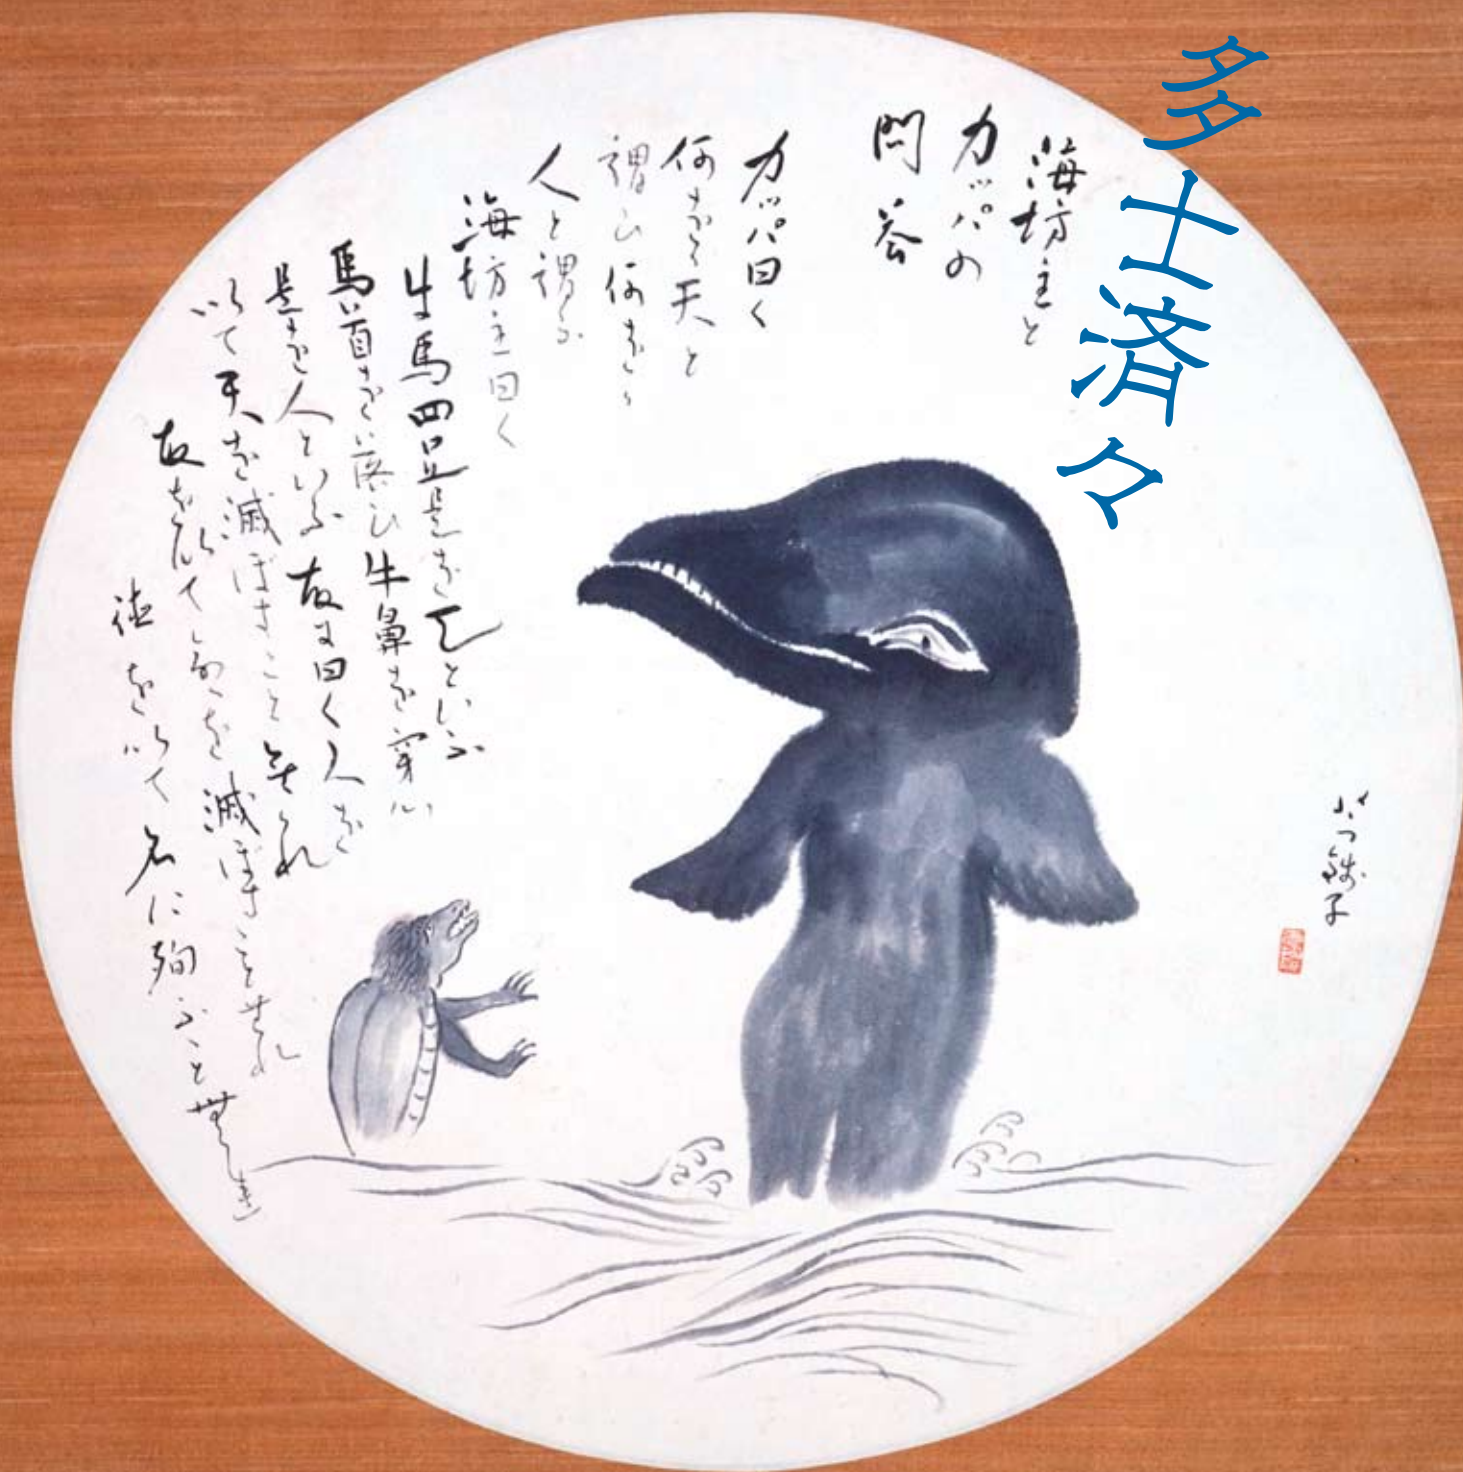 多士済々
海坊主と
カッパの
問荅
カッパ曰く
何をか天と
謂ひ何をか
人と謂ふ
海坊主曰く
牛馬四足是を天といふ
馬首を落ひ牛鼻を穿
是を人といふ故に曰く人を
以て天を滅ぼすこと無かれ
故を以て命を滅ぼすこと無かれ
徳を以て名に殉ふこと無